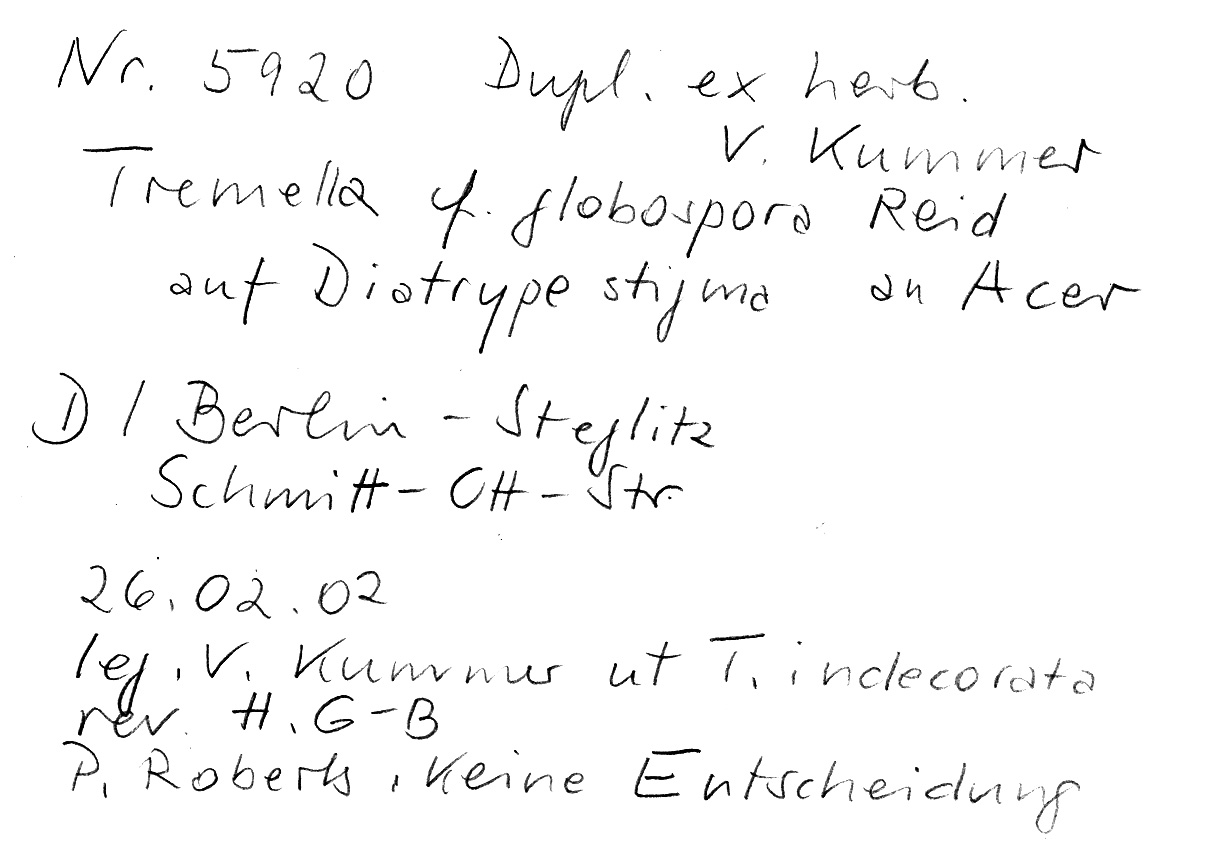 Nr. 5920 Dupl. ex herb.
V. Kummer
Tremella cf. globospora Reid
auf Diatrype stigma an Acer
D / Berlin - Steglitz
Schmitt - Ott - Str.
26.02.02
leg. V. Kummer ut T. indecorata
rev. H. G-B
P. Roberts, keine Entscheidung